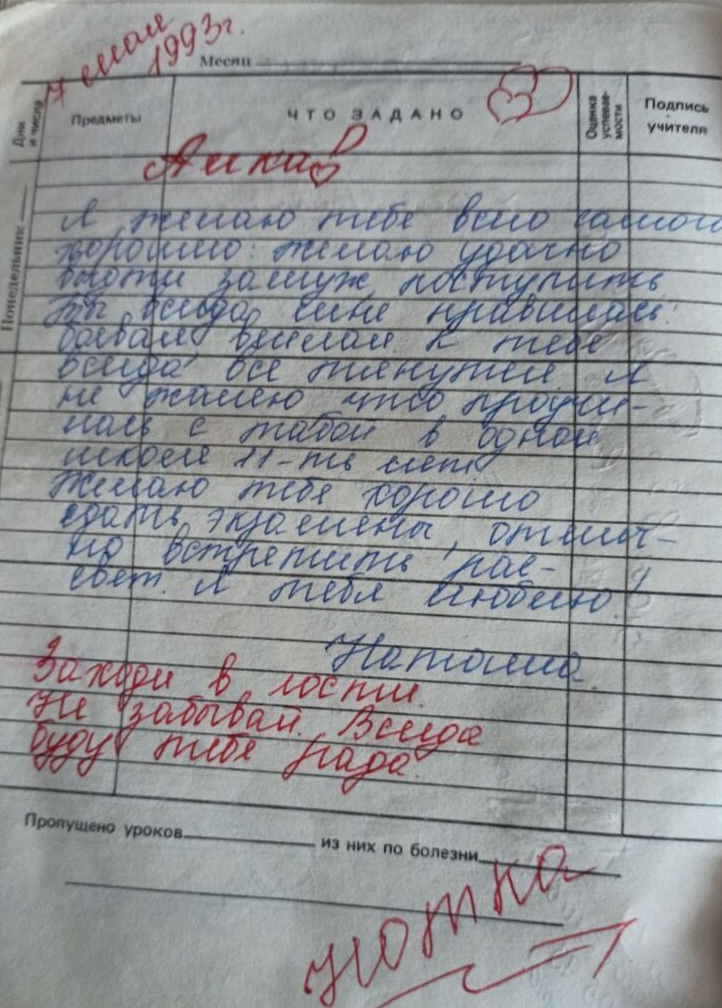 7 мая
1993г.
Месяц
Дни и числа
Предметы
ЧТО ЗАДАНО
Оценка успевае-мости
Подпись учителя
Понедельник
Анка!
Я желаю тебе всего самого
хорошего: желаю удачно
выйти замуж, поступить.
Ты всегда мне нравилась:
боевая, веселая. К тебе
всегда все тянутся. Я
не жалею что проучи-
лась с табой в одной
школе 11-ть лет.
Желаю тебе хорошо
сдать экзамены, отлич-
но встретить рас-
свет. Я тебя люблю.
Наташа.
Заходи в гости.
Не забывай. Всегда
буду тебе рада.
Пропущено уроков
из них по болезни